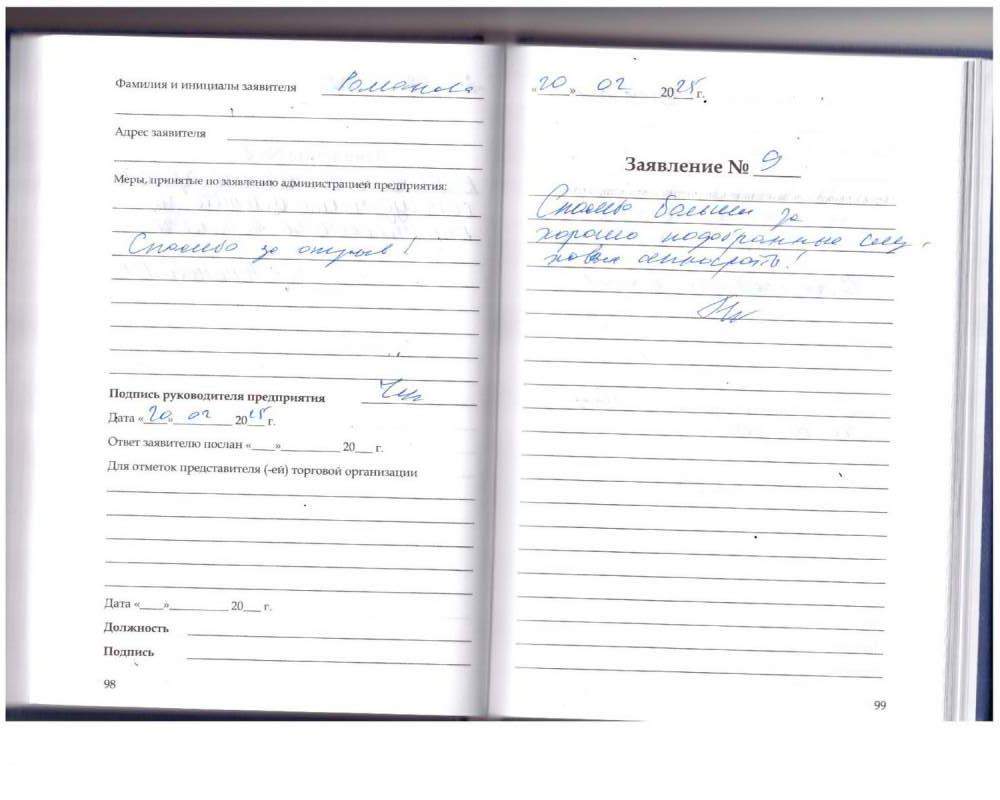 Фамилия и инициалы заявителя Романова
Адрес заявителя
Меры, принятые по заявлению администрацией предприятия:
Спасибо за отзыв!
Подпись руководителя предприятия
Дата «20» 02 2025 г.
Ответ заявителю послан «____»__________ 20___ г.
Для отметок представителя (-ей) торговой организации
Дата «____»__________ 20___ г.
Должность
Подпись
98
«20» 02 2025 г.
Заявление № 9
Спасибо большое за
хорошо подобранные
99